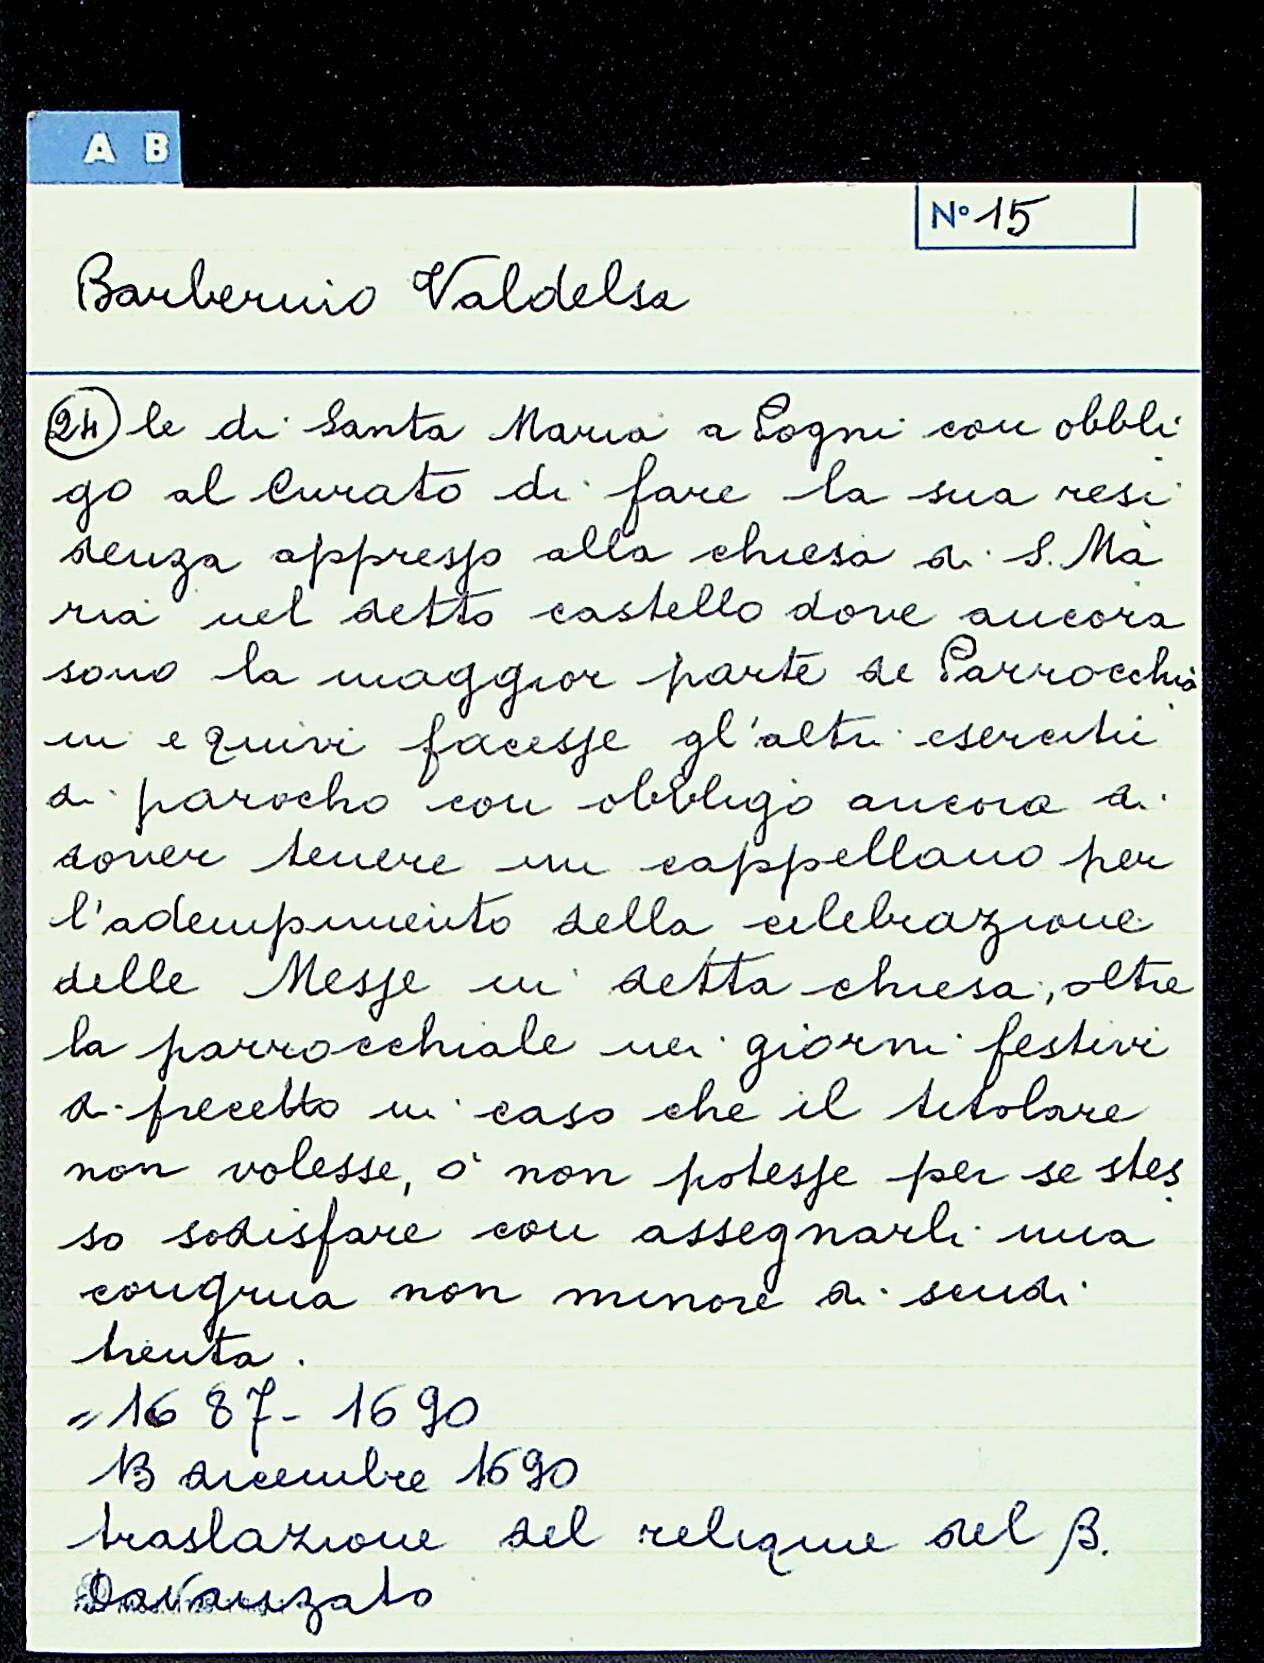 A B
N° 15
Barberino Valdelsa
24 le di Santa Maria a Pogni con obbli
go al Curato di fare la sua resi
denza appresso alla chiesa di S. Ma
ria nel detto castello dove ancora
sono la maggior parte de Parrocchia
ni e quivi facesse gl'altri esercitii
di parocho con obbligo ancora di
dover tenere un cappellano per
l'adempimento della celebrazione
delle Messe in detta chiesa, oltre
la parrocchiale nei giorni festivi
di precetto in caso che il titolare
non volesse, ò non potesse per se stes
so sodisfare con assegnarli una
congrua non minore di scudi
trenta.
= 1687 - 1690
13 dicembre 1690
traslazione del reliquie del B.
Davanzato